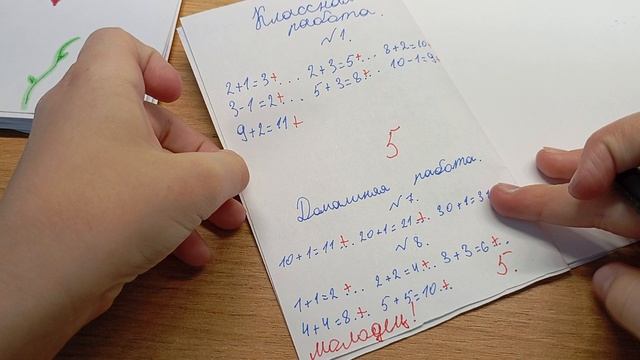 Классная
работа.
№1.
2+1=3+... 2+3=5+... 8+2=10
3-1=2+... 5+3=8+... 10-1=9
9+2=11+
5
Домашняя работа.
№7.
10+1=11+. 20+1=21+. 30+1=31
№8.
1+1=2+... 2+2=4+. 3+3=6+..
4+4=8.+. 5+5=10.+
5.
молодец!